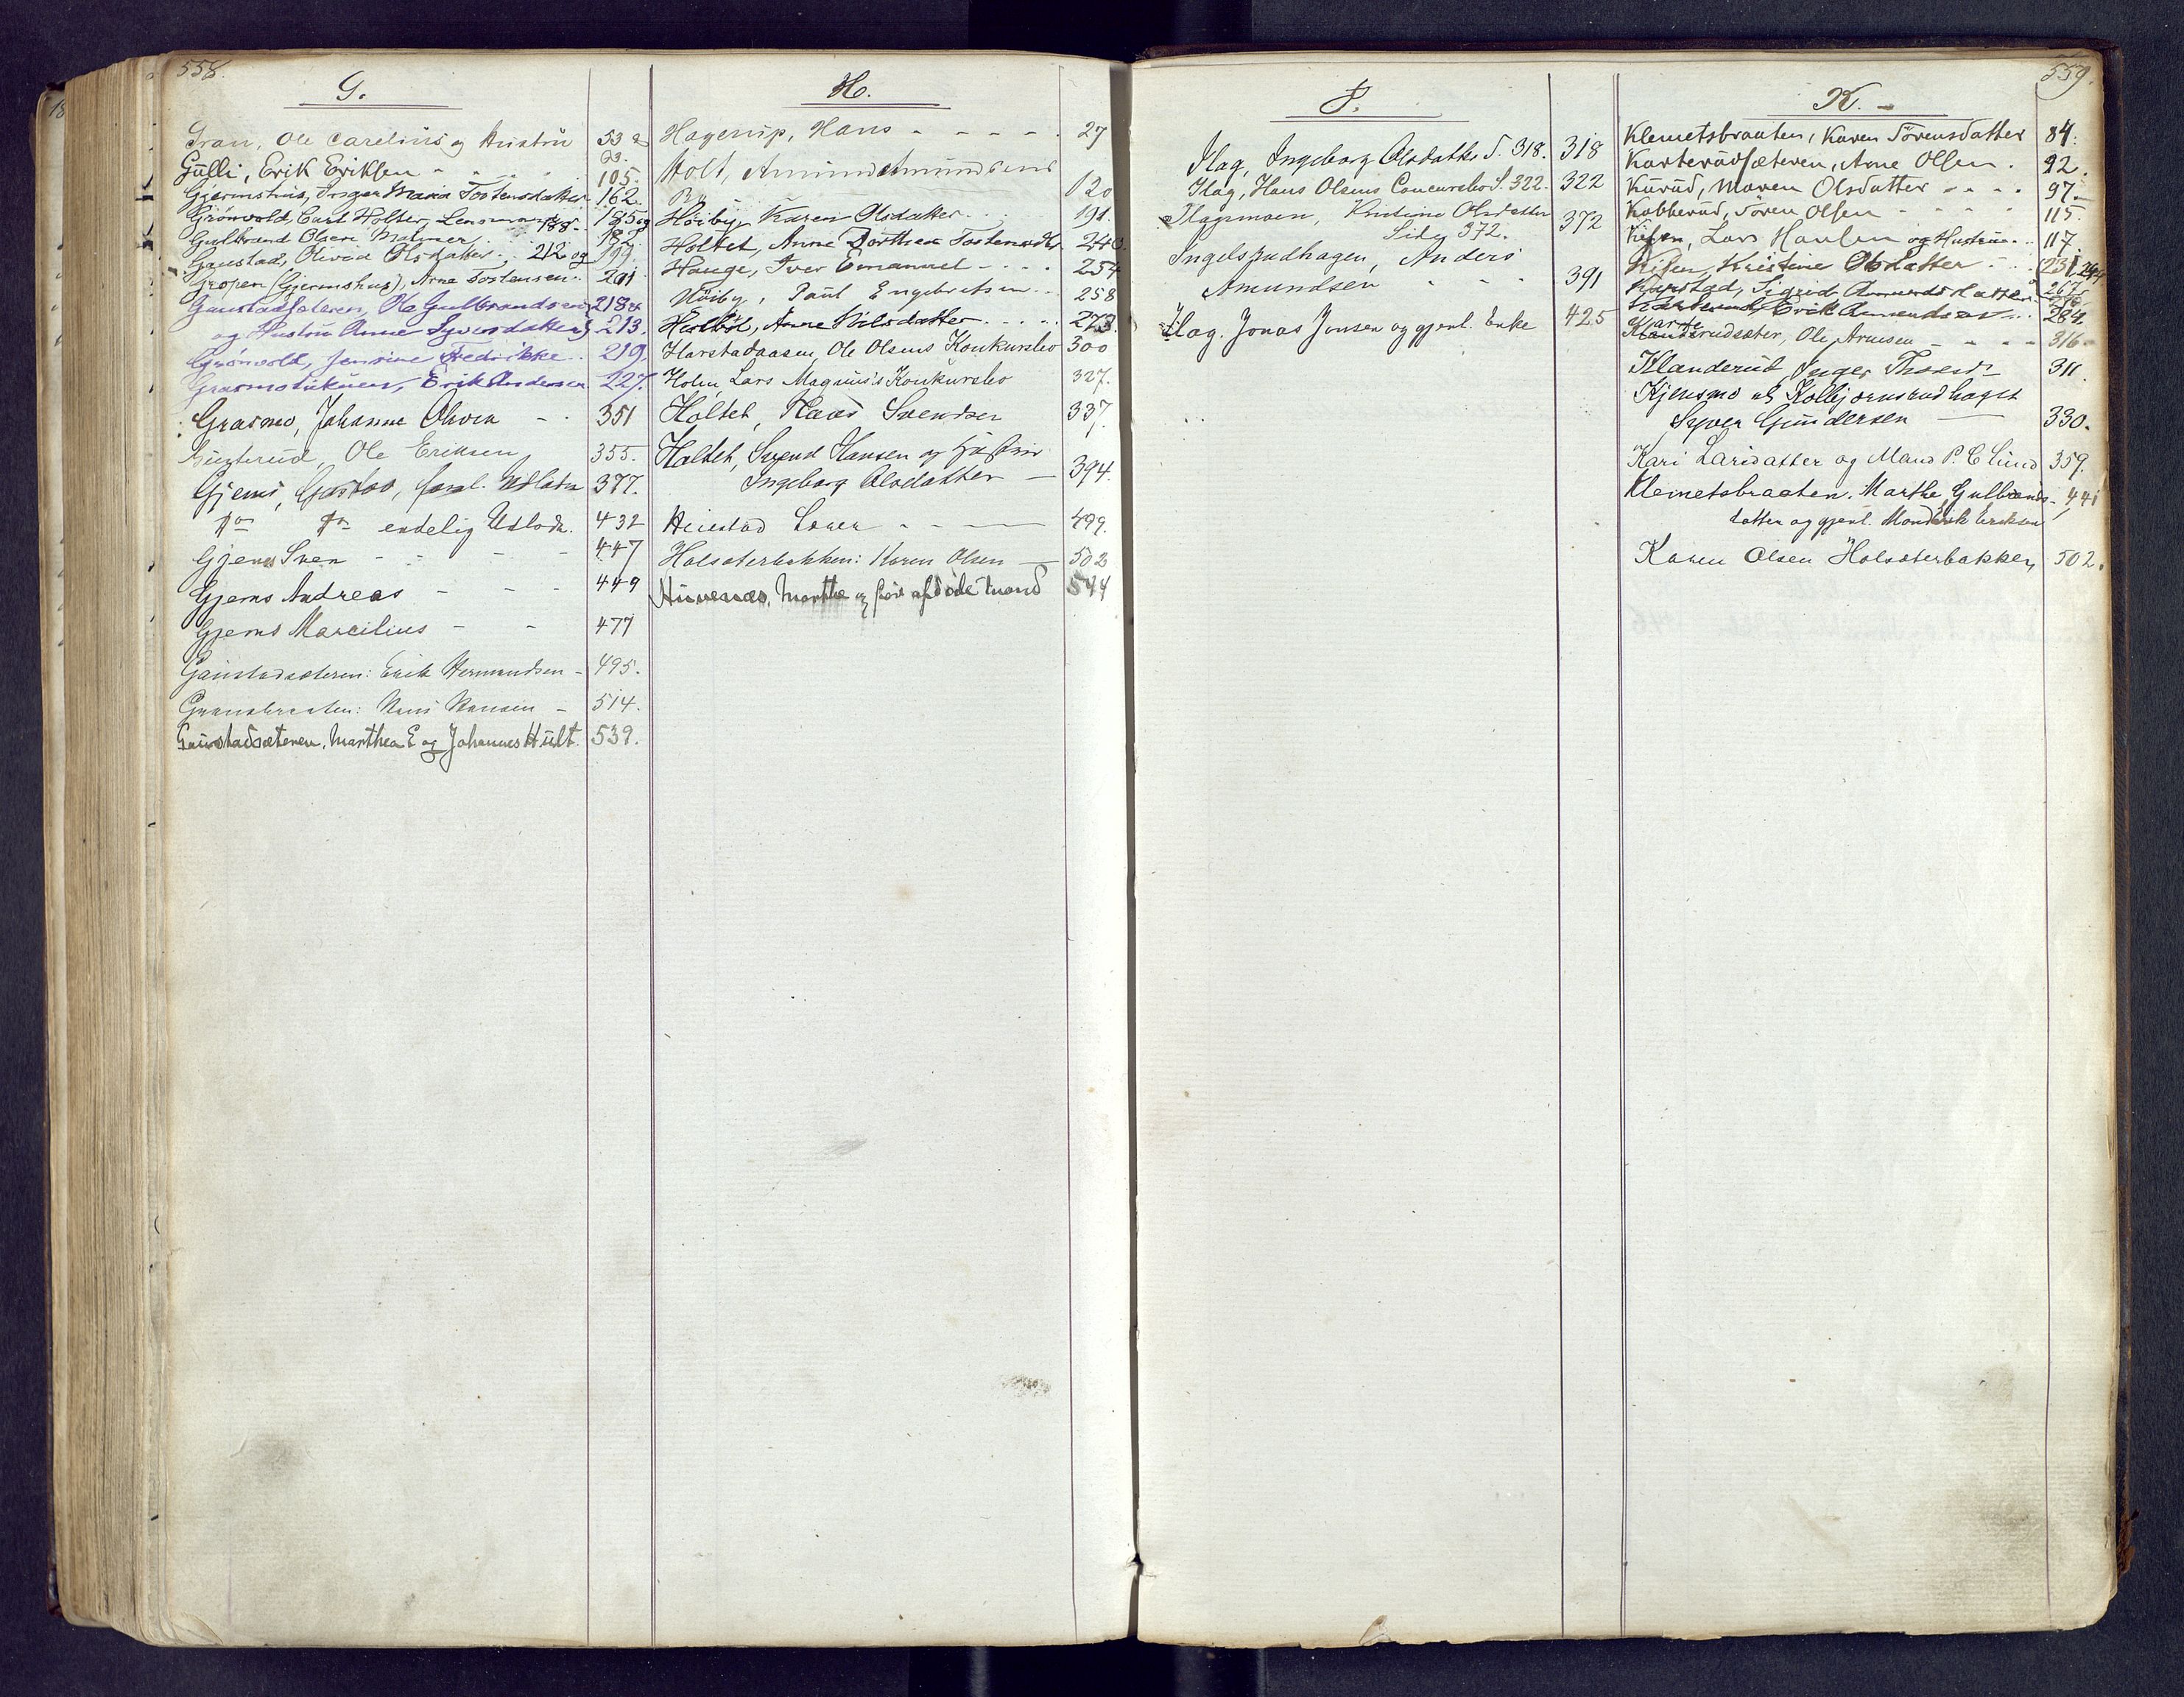 558.
G.
Gran, Ole Carelius og Hustru 53 &
93.
Gulli, Erik Eriksen - - - - 105.
Gjermshus, Inger Maria Tostensdatter 162.
Grönvold, Carl Holter, Lensmand 188. 185 og
Gulbrand Olsen Malmer 192.
Gaustad, Olivia Olsdatter. 212 og 199.
Gropen (Gjermshus), Arne Tostensen. 201
Gaustadsæteren, Ole Gulbrandsen 218 &
og Hustru Anne Syversdatter 213.
Grönvold, Jensine Fredrikke. 219.
Grasmotukuen, Erik Andersen 227.
Grasmo, Johanne Olsen - 351
Ole Eriksen 355.
Gjems, Gustav, forel. Udlodn 377.
Do Do endelig Udlodn. 432
Gjems Sven - - - - 447
Gjems Andreas - - - 449
Gjems Marcilius - - 477
Gaustadsæteren: Erik Hermundsen - 495.
Gransbraaten: Hans Hansen - 514.
Gaustadsæteren, Marthea E og Johannes Hült. 539.
H.
Hagerup, Hans - - - - . 27
Holt, Amund Amundsens
Bo 120
Höiby, Karen Olsdatter. . 191.
Holtet, Anne Dorthea Tostensdtr 240.
Hauge, Iver Emanuel - - . . 254
Höiby, Paul Engebretsen - . 258
Holböl, Anne Nilsdatter. . . . . 273.
Harstadaasen, Ole Olsens Konkursbo 300
Holm, Lars Magnus's Konkursbo 327.
Holtet, Hans Svendsen 337.
Holtet, Svend Hansen og Hustru
Ingeborg Olsdatter — 394.
Heiestad Soren - - — 499.
Holsæterbakken: Karen Olsen — 502
Hüvenæs, Marthe og før afdöde Mand 544
559.
I.
Ilag, Ingeborg Olsdatter S. 318. 318
Ilag, Hans Olsens Concursbo S. 322. 322
Ilagsmoen, Kristine Olsdatter 372
Side 372.
Ingelsrudhagen, Anders
Amundsen - - - 391
Ilag. Jonas Jonsen og gjenl. Enke 425
K.
Klemetsbraaten, Karen Sörensdatter 84.
Karterudsæteren, Arne Olsen. 92.
Kurud, Maren Olsdatter - - - . 97.
Kabberud, Sören Olsen - - - - 115.
Kisen, Lars Hansen og Hustru. . . 117.
Kisen, Kristine Olsdatter - . . 231, 244
Karstad, Sigrid Amundsdatter 267.
Erik Amundsen - . . 284.
Ole Arnesen - - - - 316
Klanderud, Inger 311
Kjensmo af Kolbjornsrudhaget
Syver Gundersen — 330.
Kari Larsdatter og Mand P. C Lund 359.
Klemetsbraaten. Marthe Gulbrands- 441
datter og gjenl. Mand Erik Eriksen
Karen Olsen Holsæterbakken, 502.